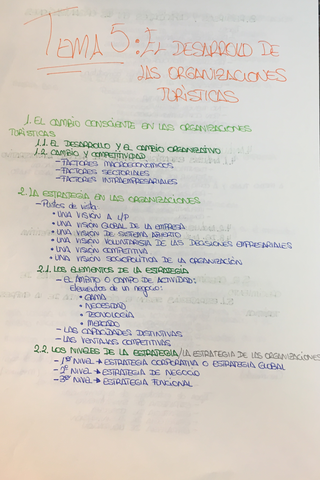 TEMA 5: EL DESARROLLO DE
LAS ORGANIZACIONES
TURÍSTICAS
1. EL CAMBIO CONSCIENTE EN LAS ORGANIZACIONES
TURÍSTICAS
1.1. EL DESARROLLO Y EL CAMBIO ORGANIZATIVO
1.2. CAMBIO Y COMPETITIVIDAD
- FACTORES MACROECONÓMICOS
- FACTORES SECTORIALES
- FACTORES INTRAEMPRESARIALES
2. LA ESTRATEGIA EN LAS ORGANIZACIONES
- Puntos de vista
• UNA VISIÓN A L/P
• UNA VISIÓN GLOBAL DE LA EMPRESA
• UNA VISIÓN DE SISTEMA ABIERTO
• UNA VISIÓN VOLUNTARISTA DE LAS DECISIONES EMPRESARIALES
• UNA VISIÓN COMPETITIVA
• UNA VISIÓN SOCIOPOLÍTICA DE LA ORGANIZACIÓN
2.1. LOS ELEMENTOS DE LA ESTRATEGIA
- EL ÁMBITO O CAMPO DE ACTIVIDAD:
Elementos de un negocio:
• GAMA
• NECESIDAD
• TECNOLOGÍA
• MERCADO
- LAS CAPACIDADES DISTINTIVAS
- LAS VENTAJAS COMPETITIVAS
2.2. LOS NIVELES DE LA ESTRATEGIA/LA ESTRATEGIA DE LAS ORGANIZACIONES
- 1er NIVEL → ESTRATEGIA CORPORATIVA O ESTRATEGIA GLOBAL
- 2º NIVEL → ESTRATEGIA DE NEGOCIO
- 3er NIVEL → ESTRATEGIA FUNCIONAL